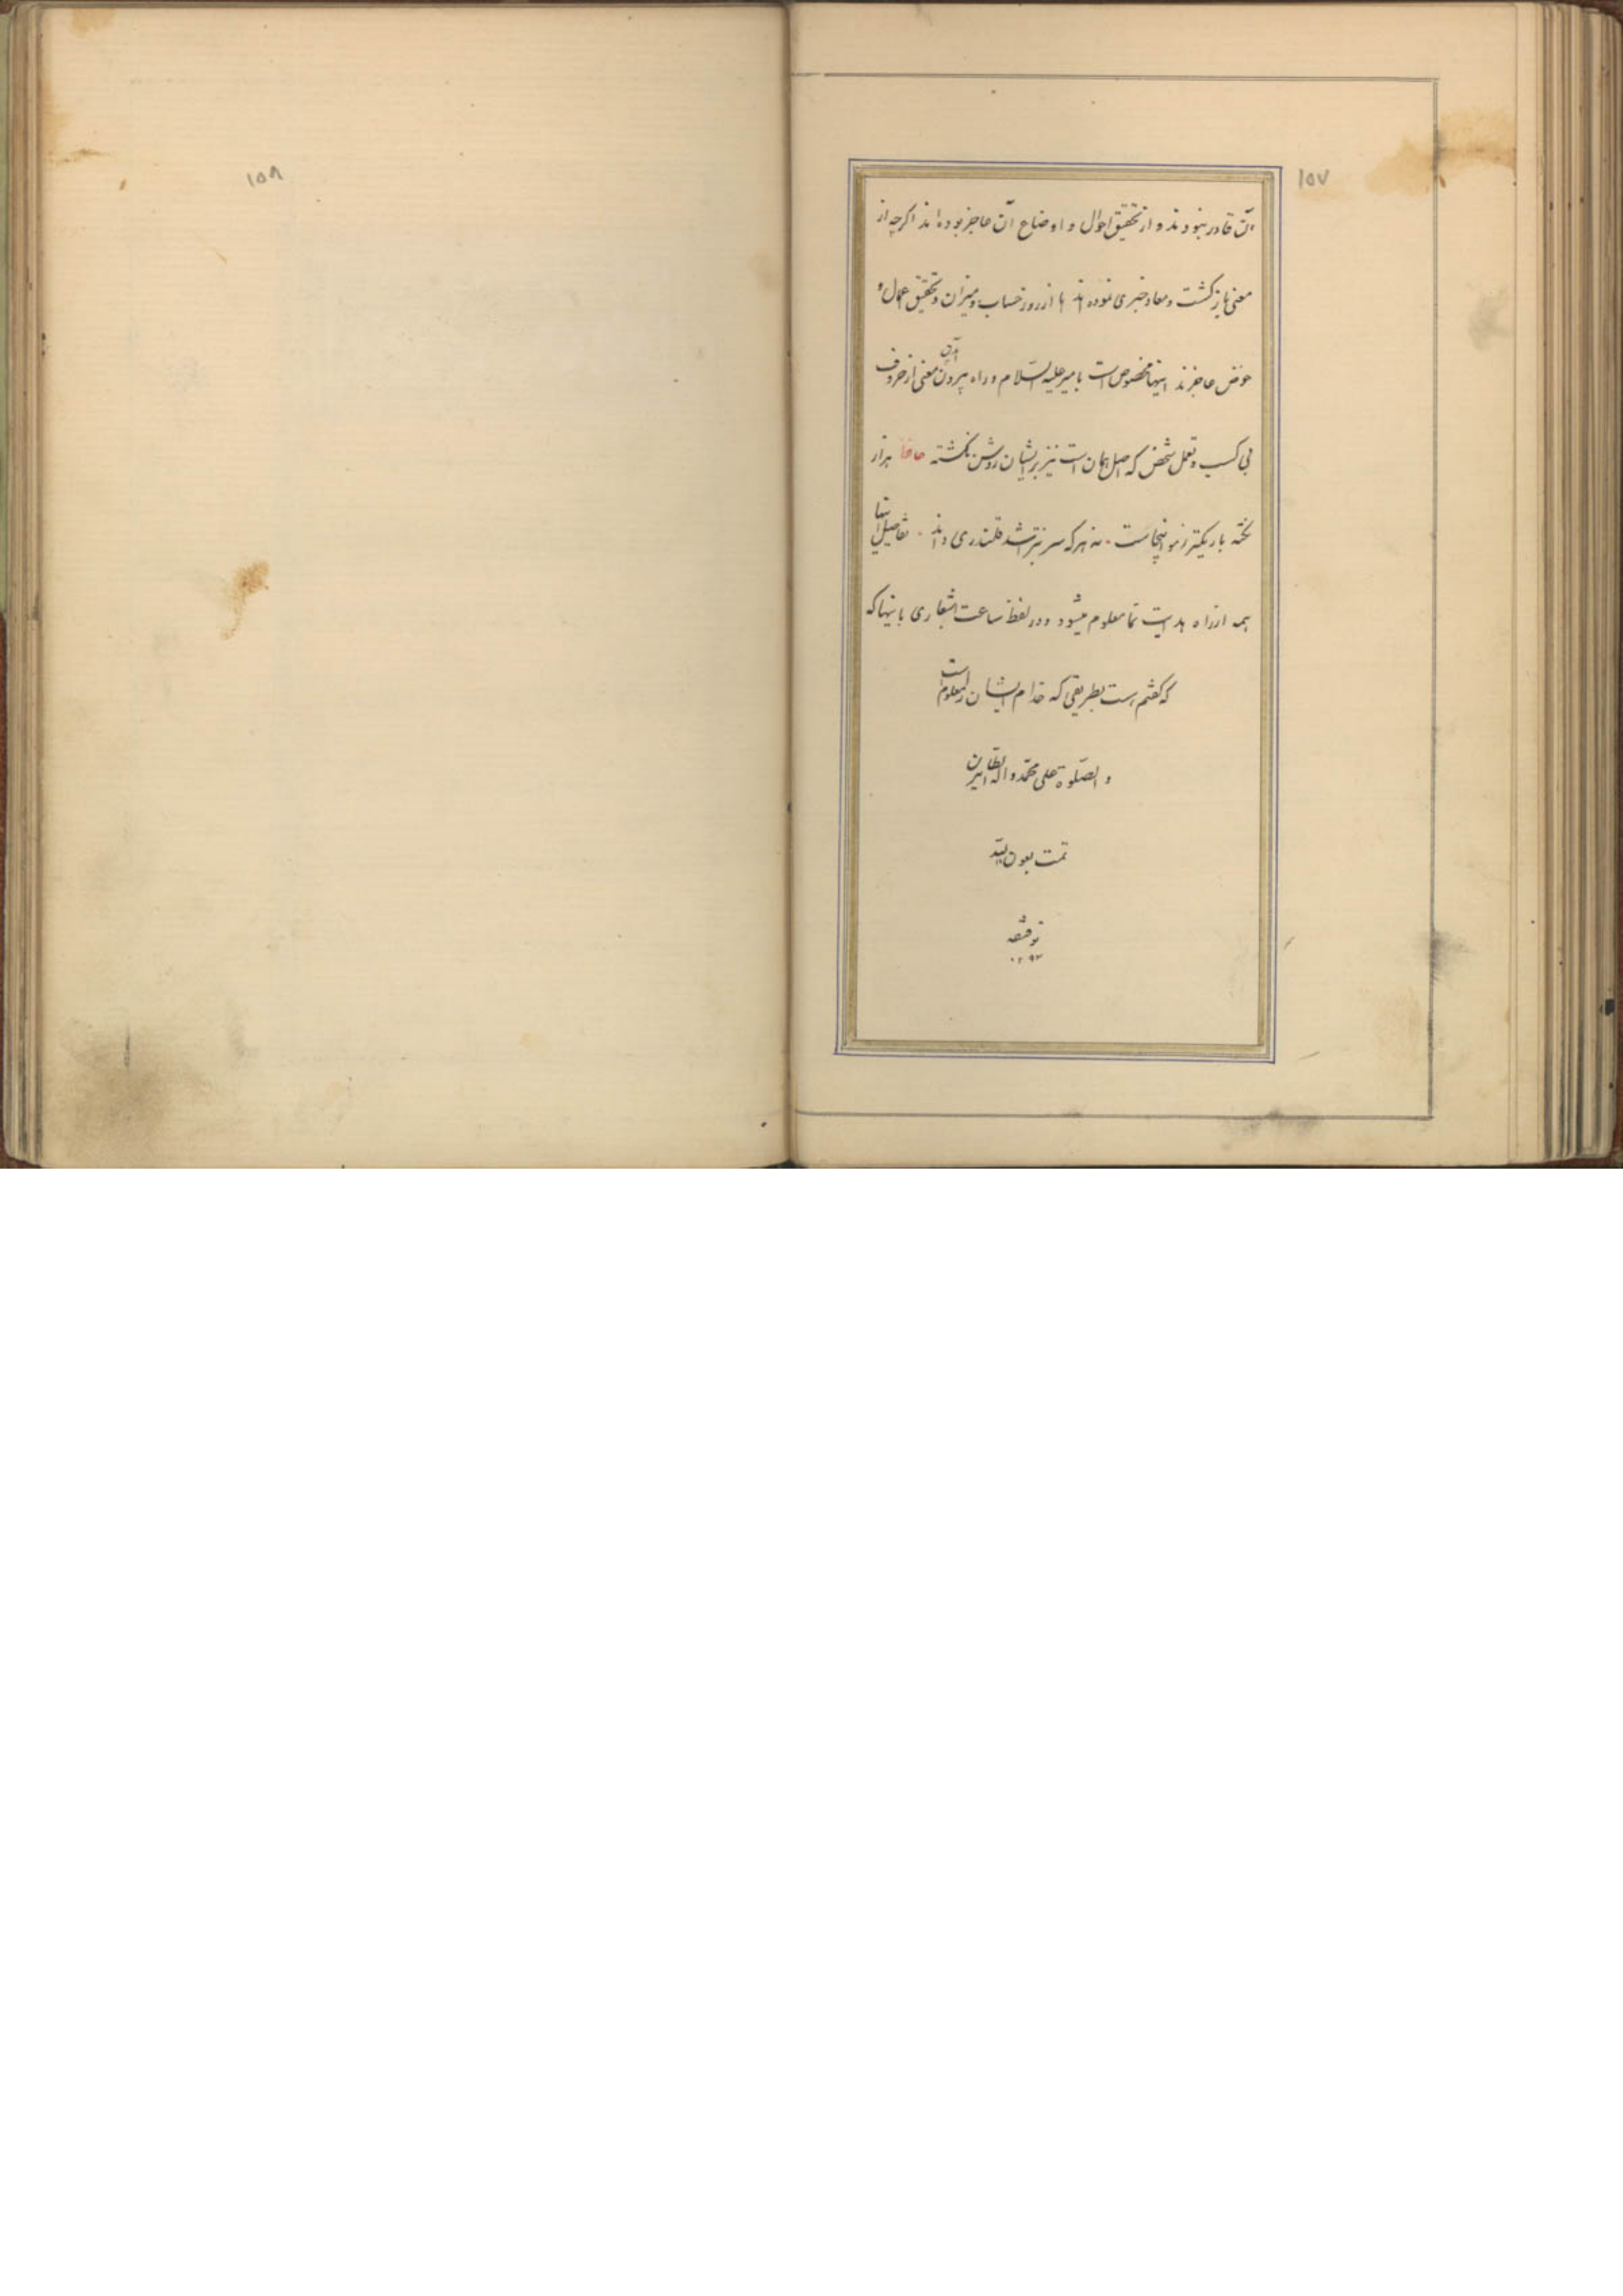 ۱۵۷
آن قادر نبودند و از تحقیق احوال و اوضاع آن عاجز بوده‌اند اکرچه از
معنی بازکشت و معاد خبری نموده‌اند اما از روز حساب و میزان و تحقیق اعمال و
عوض عاجزند اینها مخصوص است بامیر علیه السلام و راه بیرون آمدن معنی از حروف
بی کسب و تعمل شخص که اصل همان است نیز بریشان روشن نکشته حافظ هزار
نکته باریکتر ز مو اینجاست ۰ نه هرکه سر بتراشد قلندری داند ۰ تفاصیل اینها
همه از راه هدایت نما معلوم میشود و در لفظ ساعت اشعاری باینها که
که کفتم هست بطریقی که خدام ایشان را معلوم است
و الصلوة علی محمد و اله الطاهرین
تمت بعون الله
توفیقه
۱۲۹۳
۱۵۸